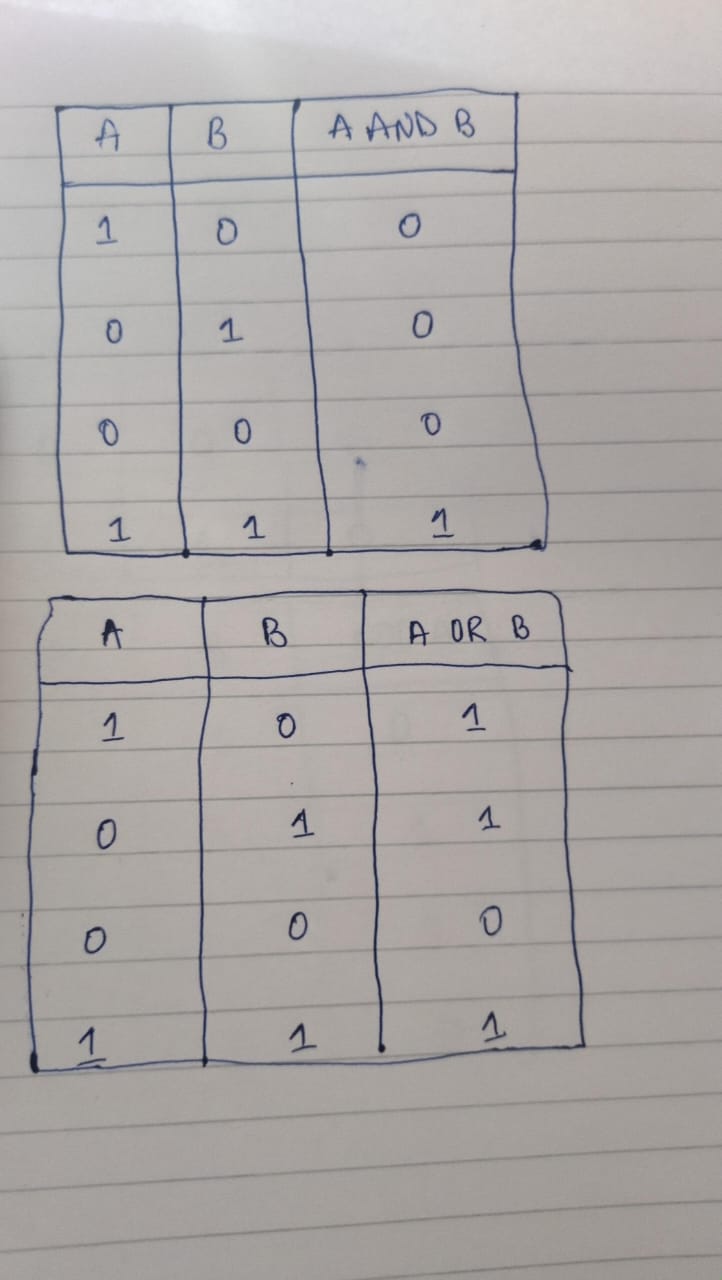 A B A AND B
1 0 0
0 1 0
0 0 0
1 1 1
A B A OR B
1 0 1
0 1 1
0 0 0
1 1 1